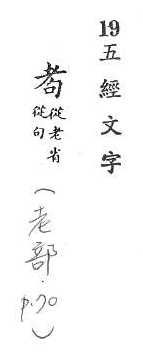 19五經文字
耇
從老省
從句
(老部·p.70)